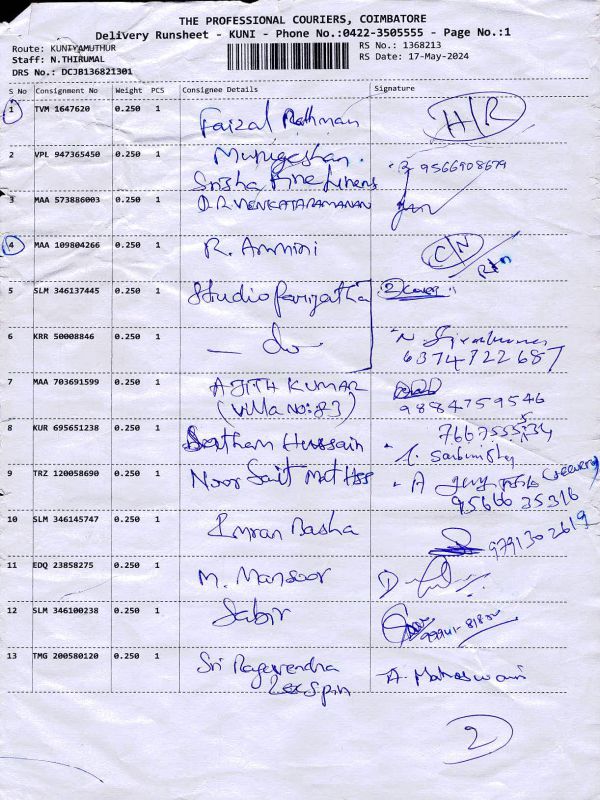 THE PROFESSIONAL COURIERS, COIMBATORE
Delivery Runsheet - KUNI - Phone No.:0422-3505555 - Page No.:1
Route: KUNIYAMUTHUR
Staff: N.THIRUMAL
DRS No.: DCJB136821301
RS No.: 1368213
RS Date: 17-May-2024
S No Consignment No Weight PCS Consignee Details Signature
1 TVM 1647620 0.250 1 Faizal Rathman H/R
2 VPL 947365450 0.250 1 Murugeshan. 9566908679
Srisha Fine Linens
3 MAA 573886003 0.250 1 D.R VENKATARAMANAN
4 MAA 109804266 0.250 1 R. Ammini C/N
5 SLM 346137445 0.250 1 Studio Parijatha 2 Cover
6 KRR 50008846 0.250 1 — do — N
6374722687
7 MAA 703691599 0.250 1 AJITH KUMAR
(Villa No: 83) 9884759546
8 KUR 695651238 0.250 1 Hussain
9 TRZ 120058690 0.250 1 Noor Sait Mat HSS
9566635316
10 SLM 346145747 0.250 1 Imran Basha 9791302619
11 EDQ 23858275 0.250 1 M. Mansoor
12 SLM 346100238 0.250 1 Sabir
13 TMG 200580120 0.250 1 Sri Ragavendra A. Maheswari
Lexspin
2